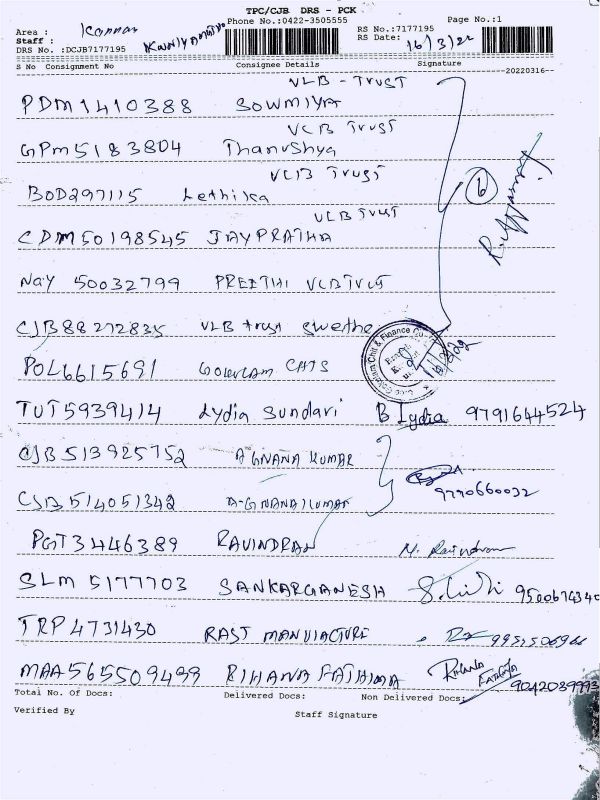 TPC/CJB DRS - PCK
Phone No.:0422-3505555 Page No.:1
Area : Kannan
Staff :
RS No.:7177195
RS Date: 16/3/22
DRS No. :DCJB7177195
S No Consignment No Consignee Details Signature
20220316
VLB - TRUST
PDM1410388 SOWMIYA
VLB Trust
GPM5183804 Thanushya
VLB Trust
BOD297115 Lethika
VLB Trust
CDM50198545 JAYPRATHA
6
NAY 50032799 PREETHI VLBTrust
CJB88272835 VLB trust swethe
POL6615691 GOKULAM CHITS
TUT5939414 Lydia Sundari B Lydia 9791644524
CJB513925752 A GNANA KUMAR
CJB514051342 A-GNANA KUMAR 9790660032
PGT3446389 RAVINDRAN M. Ravindran
SLM 5177703 SANKARGANESH
TRP4731430 RAST MANUIACTURE
MAA565509499 RIHANA FATHIMA Rihana Fathima 9042039993
Total No. Of Docs: Delivered Docs: Non Delivered Docs:
Verified By Staff Signature